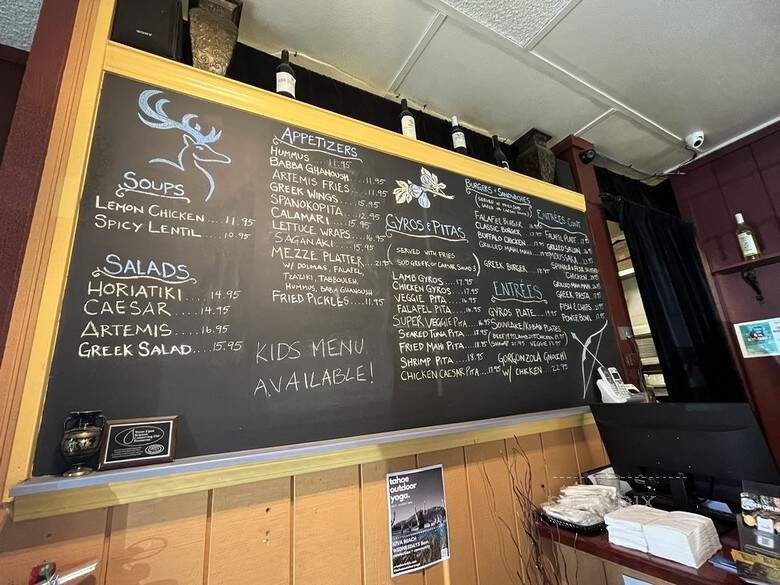 SOUPS
LEMON CHICKEN...11.95
SPICY LENTIL....10.95
SALADS
HORIATIKI....14.95
CAESAR....14.95
ARTEMIS....16.95
GREEK SALAD....15.95
APPETIZERS
HUMMUS...11.95
BABBA GHANOUSH...11.95
ARTEMIS FRIES...11.95
GREEK WINGS...15.95
SPANOKOPITA...12.95
CALAMARI...15.95
LETTUCE WRAPS...16.95
SAGANAKI...15.95
MEZZE PLATTER...21.95
W/ DOLMAS, FALAFEL,
TZAZIKI, TABBOULEH,
HUMMUS, BABA GHANOUSH
FRIED PICKLES...11.95
KIDS MENU
AVAILABLE!
GYROS & PITAS
SERVED WITH FRIES
SUB GREEK OR CAESAR SALAD
LAMB GYROS....17.95
CHICKEN GYROS...17.95
VEGGIE PITA....16.95
FALAFEL PITA...16.95
SUPER VEGGIE PITA...16.95
SEARED TUNA PITA...18.95
FRIED MAHI PITA...18.95
SHRIMP PITA...18.95
CHICKEN CAESAR PITA...17.95
BURGERS & SANDWICHES
FALAFEL BURGER
CLASSIC BURGER
BUFFALO CHICKEN
GRILLED MAHI MAHI
GREEK BURGER
ENTRÉES
GYROS PLATE
SOUVLAKI/KABAB PLATES
GORGONZOLA GNOCCHI
W/ CHICKEN 22.95
ENTRÉES CONT.
FALAFEL PLATE
GRILLED SALMON
MOUSSAKA
CHICKEN
GRILLED MAHI MAHI
GREEK PASTA
FISH & CHIPS
POWER BOWL
tahoe
outdoor
yoga.
KIVA BEACH
WEDNESDAYS 8am.
SONY